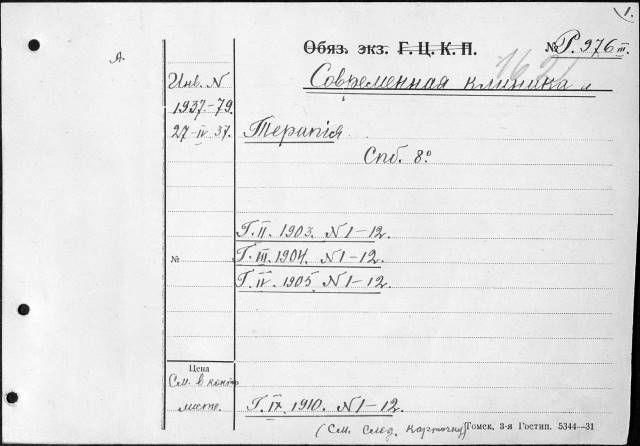 1.
А.
Обяз. экз. Г. Ц. К. П.
№ Р. 976 III.
162
Современная клиника и
Инв. N
1937–79.
27–IV 37.
Терапія
Спб. 8º
Г. II. 1903. N 1–12.
Г. III. 1904. N 1–12.
№
Г. IV. 1905. N 1–12.
Цена
См. в контр
листе.
Г. IX. 1910. N 1–12.
(См. след. карточку)
Томск, 3-я Гостип. 5344—31